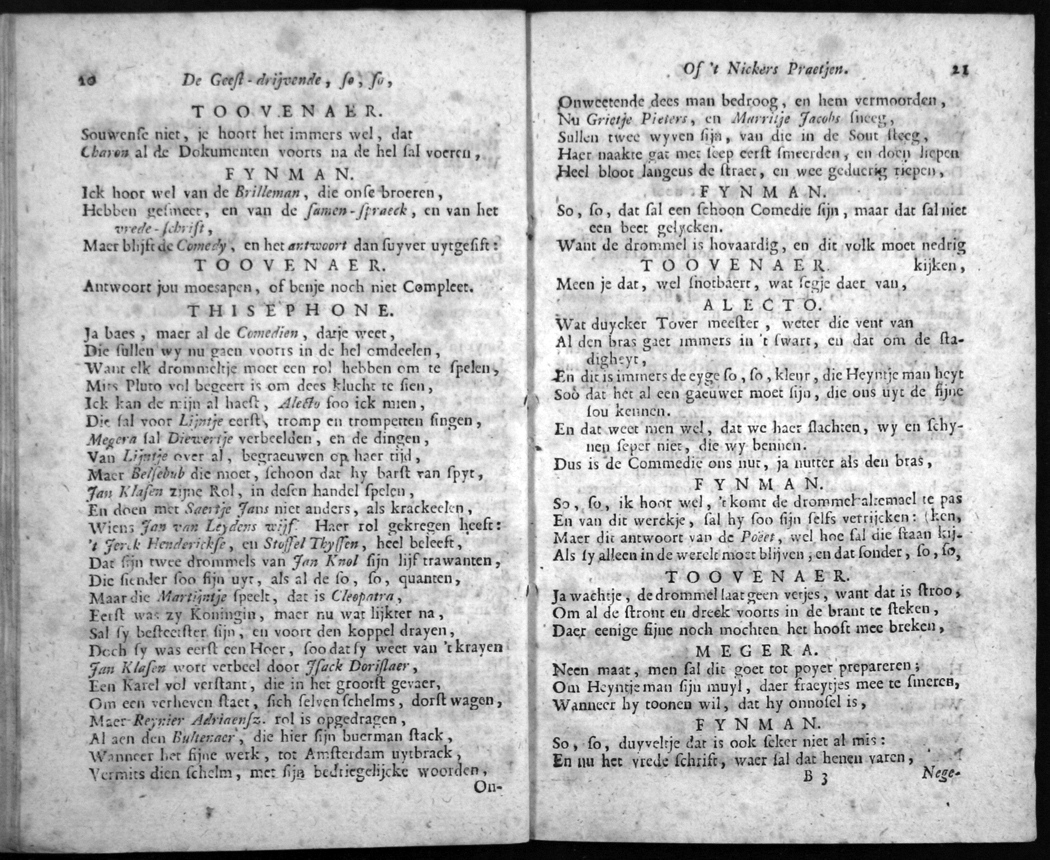 20 De Geeſt-drijvende, ſo, ſo,
TOOVENAER.
Souwenſe niet, je hoort het immers wel, dat
Charon al de Dokumenten voorts na de hel ſal voeren,
FYNMAN.
Ick hoor wel van de Brilleman, die onſe broeren,
Hebben geſmeet, en van de ſamen-ſpraeck, en van het
vrede-ſchriſt,
Maer blijft de Comedy, en het antwoort dan ſuyver uytgeſift:
TOOVENAER.
Antwoort jou moesapen, of benje noch niet Compleet.
THISEPHONE.
Ja baes, maer al de Comedien, datje weet,
Die ſullen wy nu gaen voorts in de hel omdeelen,
Want elk drommeltje moet een rol hebben om te ſpelen,
Mits Pluto vol begeert is om dees klucht te ſien,
Ick kan de mijn al haeſt, Alecto ſoo ick mien,
Die ſal voor Lijntje eerſt, tromp en trompetten ſingen,
Megera ſal Diewertje verbeelden, en de dingen,
Van Lijntje over al, begraeuwen op haer tijd,
Maer Belſebub die moet, ſchoon dat hy barſt van ſpyt,
Jan Klaſen zijne Rol, in deſen handel ſpelen,
En doen met Saertje Jans niet anders, als krackeelen,
Wiens Jan van Leydens wijf. Haer rol gekregen heeft:
't Jerck Henderickſe, en Stoffel Thyſſen, heel beleeft,
Dat ſijn twee drommels van Jan Knol ſijn lijf trawanten,
Die ſiender ſoo fijn uyt, als al de ſo, ſo, quanten,
Maar die Martijntje ſpeelt, dat is Cleopatra,
Eerſt was zy Koningin, maer nu wat lijkter na,
Sal ſy beſteeſter ſijn, en voort den koppel drayen,
Doch ſy was eerſt een Hoer, ſoo dat ſy weet van 't krayen
Jan Klaſen wort verbeel door Iſack Doriſlaer,
Een Karel vol verſtant, die in het grootſt gevaer,
Om een verheven ſtaet, ſich ſelven ſchelms, dorſt wagen,
Maer Reynier Adriaenſz. rol is opgedragen,
Al aen den Bultenaer, die hier ſijn buerman ſtack,
Wanneer het fijne werk, tot Amſterdam uytbrack,
Vermits dien ſchelm, met ſijn bedriegelijcke woorden,
On-
Of 't Nickers Praetjen. 21
Onweetende dees man bedroog, en hem vermoorden,
Nu Grietje Pieters, en Marritje Jacobs ſneeg,
Sullen twee wyven ſijn, van die in de Sout ſteeg,
Haer naakte gat met ſeep eerſt ſmeerden, en doen liepen
Heel bloot langens de ſtraet, en wee geduerig riepen,
FYNMAN.
So, ſo, dat ſal een ſchoon Comedie ſijn, maar dat ſal niet
een beet gelycken.
Want de drommel is hovaardig, en dit volk moet nedrig
TOOVENAER. kijken,
Meen je dat, wel ſnotbaert, wat ſegje daer van,
ALECTO.
Wat duycker Tover meeſter, weter die vent van
Al den bras gaet immers in 't ſwart, en dat om de ſta-
digheyt,
En dit is immers de eyge ſo, ſo, kleur, die Heyntje man heyt
Soo dat het al een gaeuwer moet ſijn, die ons uyt de fijne
ſou kennen.
En dat weet men wel, dat we haer ſlachten, wy en ſchy-
nen ſeper niet, die wy bennen.
Dus is de Commedie ons nut, ja nutter als den bras,
FYNMAN.
So, ſo, ik hoor wel, 't komt de drommel altemael te pas
En van dit werckje, ſal hy ſoo ſijn ſelfs verrijcken: (ken,
Maer dit antwoort van de Poëet, wel hoe ſal die ſtaan kij-
Als ſy alleen in de werelt moet blijven, en dat ſonder, ſo, ſo,
TOOVENAER.
Ja wachtje, de drommel laat geen vetjes, want dat is ſtroo,
Om al de ſtront en dreek voorts in de brant te ſteken,
Daer eenige fijne noch mochten het hooft mee breken,
MEGERA.
Neen maat, men ſal dit goet tot poyer prepareren;
Om Heyntje man ſijn muyl, daer fraeytjes mee te ſmeren,
Wanneer hy toonen wil, dat hy onnoſel is,
FYNMAN.
So, ſo, duyveltje dat is ook ſeker niet al mis:
En nu het vrede ſchrift, waer ſal dat henen varen,
B 3 Nege-